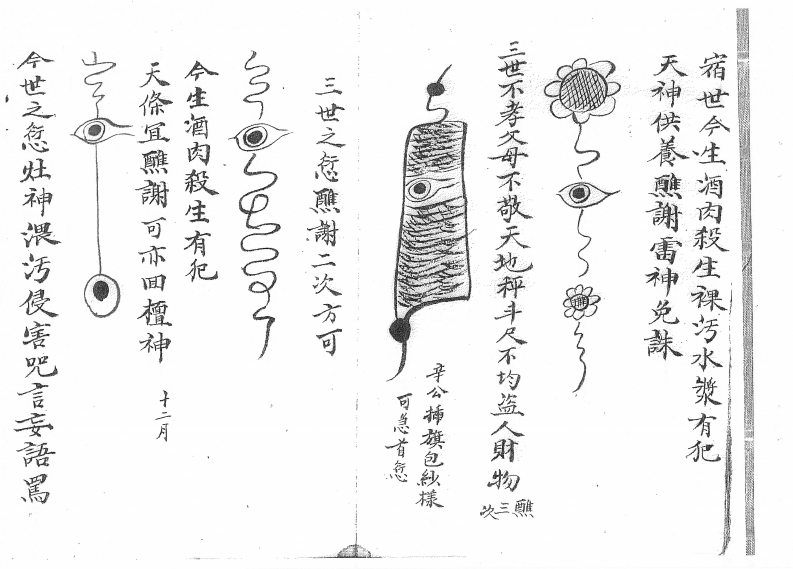 宿世今生酒肉殺生裸汚水漿有犯
天神供養醮謝雷神免誅
三世不孝父母不敬天地秤斗尺不均盗人財物
醮三次
辛公揷旗包紗樣
可急首愆
三世之愆醮謝二次方可
今生酒肉殺生有犯
天條宜醮謝可亦回檀神
十二月
今世之愆灶神混汚侵害咒言妄語罵